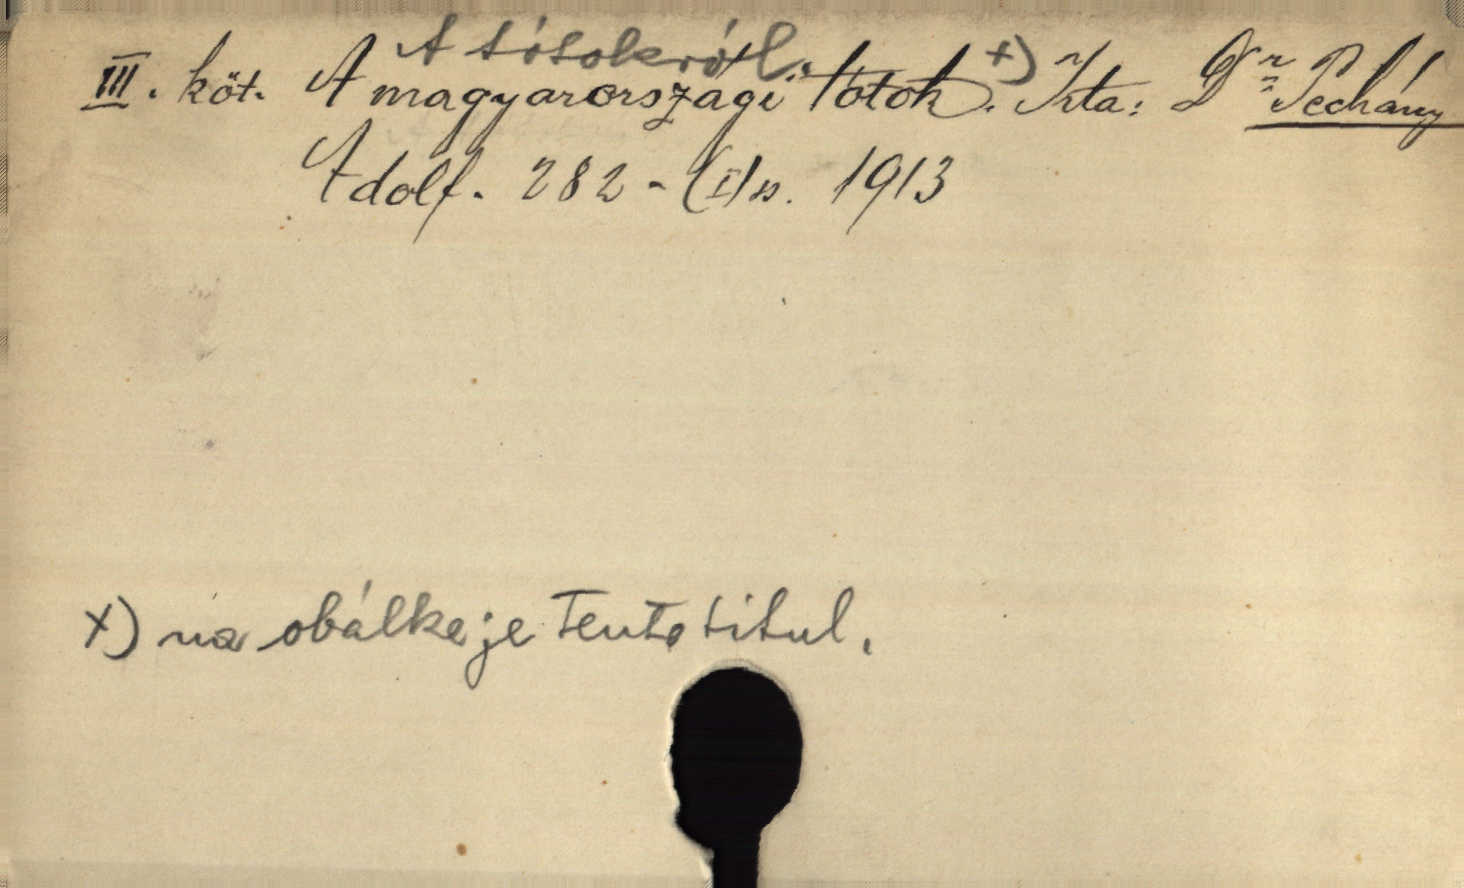 A tótokról.
III. köt. A magyarországi tótok. +) Irta: Dr Pechány
Adolf. 282 - (I) s. 1913
+) na obálke je tento titul.